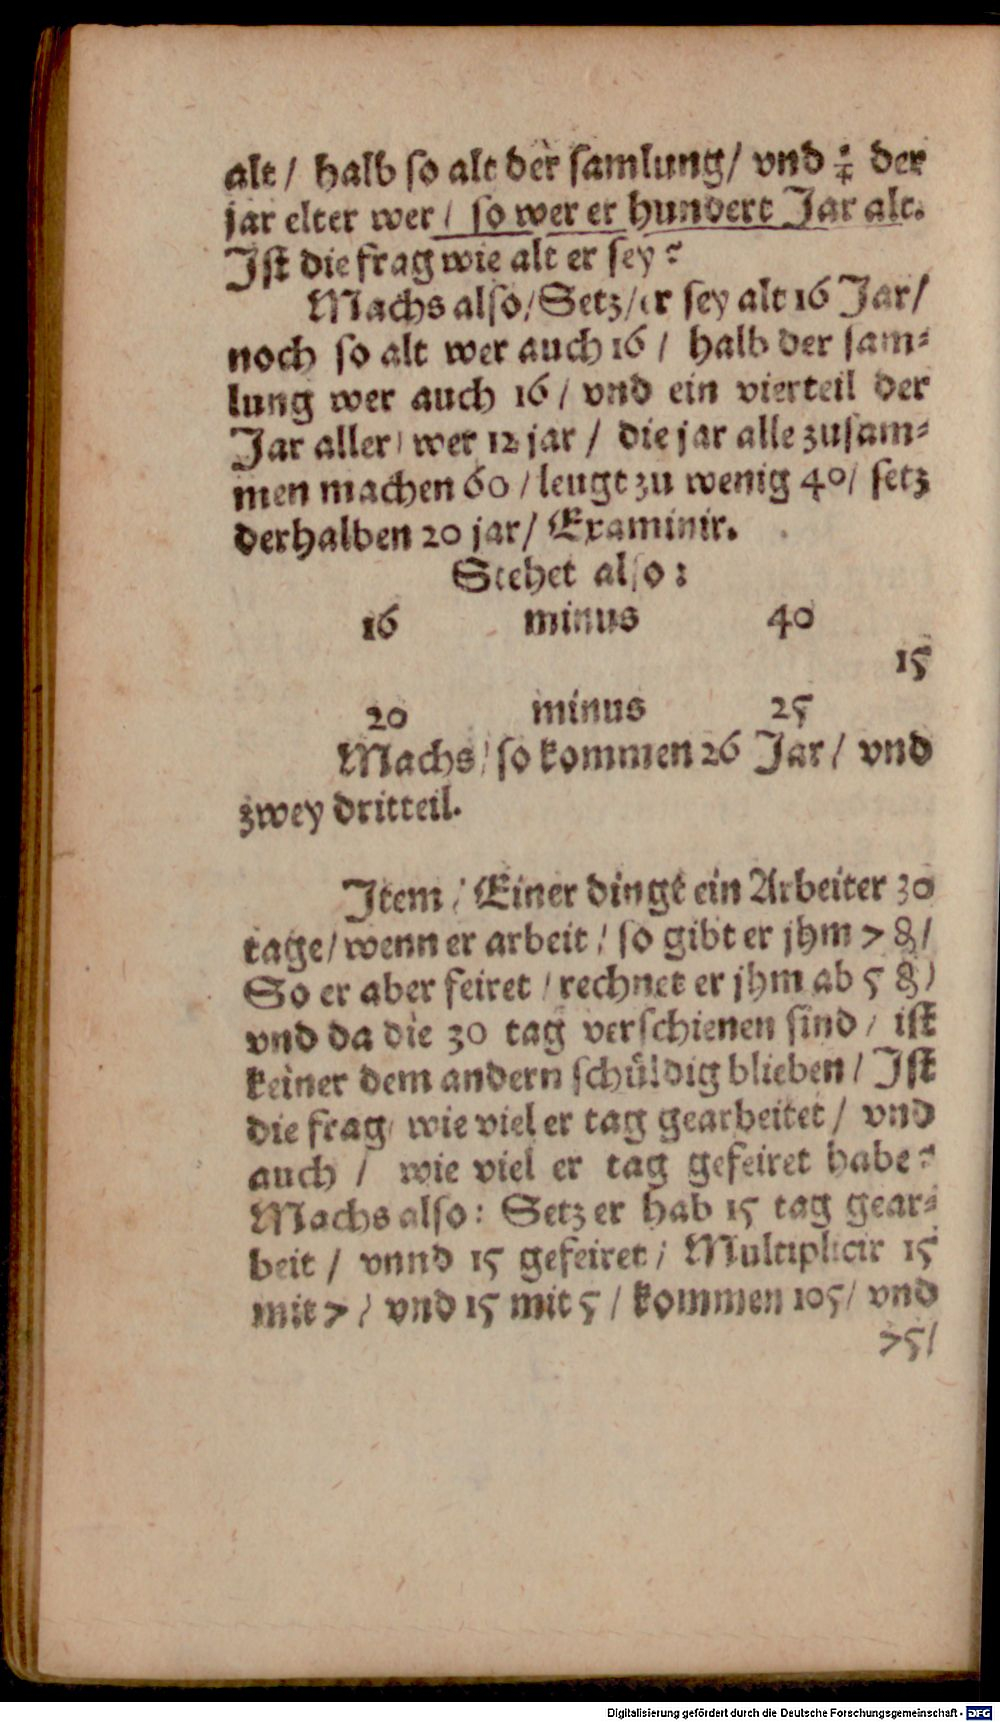 alt / halb so alt der samlung / vnd ¼ der
jar elter wer / so wer er hundert Jar alt.
Jst die frag wie alt er sey?
Machs also / Setz / er sey alt 16 Jar /
noch so alt wer auch 16 / halb der sam⸗
lung wer auch 16 / vnd ein vierteil der
Jar aller / wer 12 jar / die jar alle zusam⸗
men machen 60 / leugt zu wenig 40 / setz
derhalben 20 jar / Examinir.
Stehet also:
16 minus 40
15
20 minus 25
Machs / so kommen 26 Jar / vnd
zwey dritteil.
Jtem / Einer dingt ein Arbeiter 30
tage / wenn er arbeit / so gibt er jhm 7 ₰ /
So er aber feiret / rechnet er jhm ab 5 ₰ /
vnd da die 30 tag verschienen sind / ist
keiner dem andern schüldig blieben / Jst
die frag / wie viel er tag gearbeitet / vnd
auch / wie viel er tag gefeiret habe?
Machs also: Setz er hab 15 tag gear⸗
beit / vnnd 15 gefeiret / Multiplicir 15
mit 7 / vnd 15 mit 5 / kommen 105 / vnd
75 /
Digitalisierung gefördert durch die Deutsche Forschungsgemeinschaft - DFG